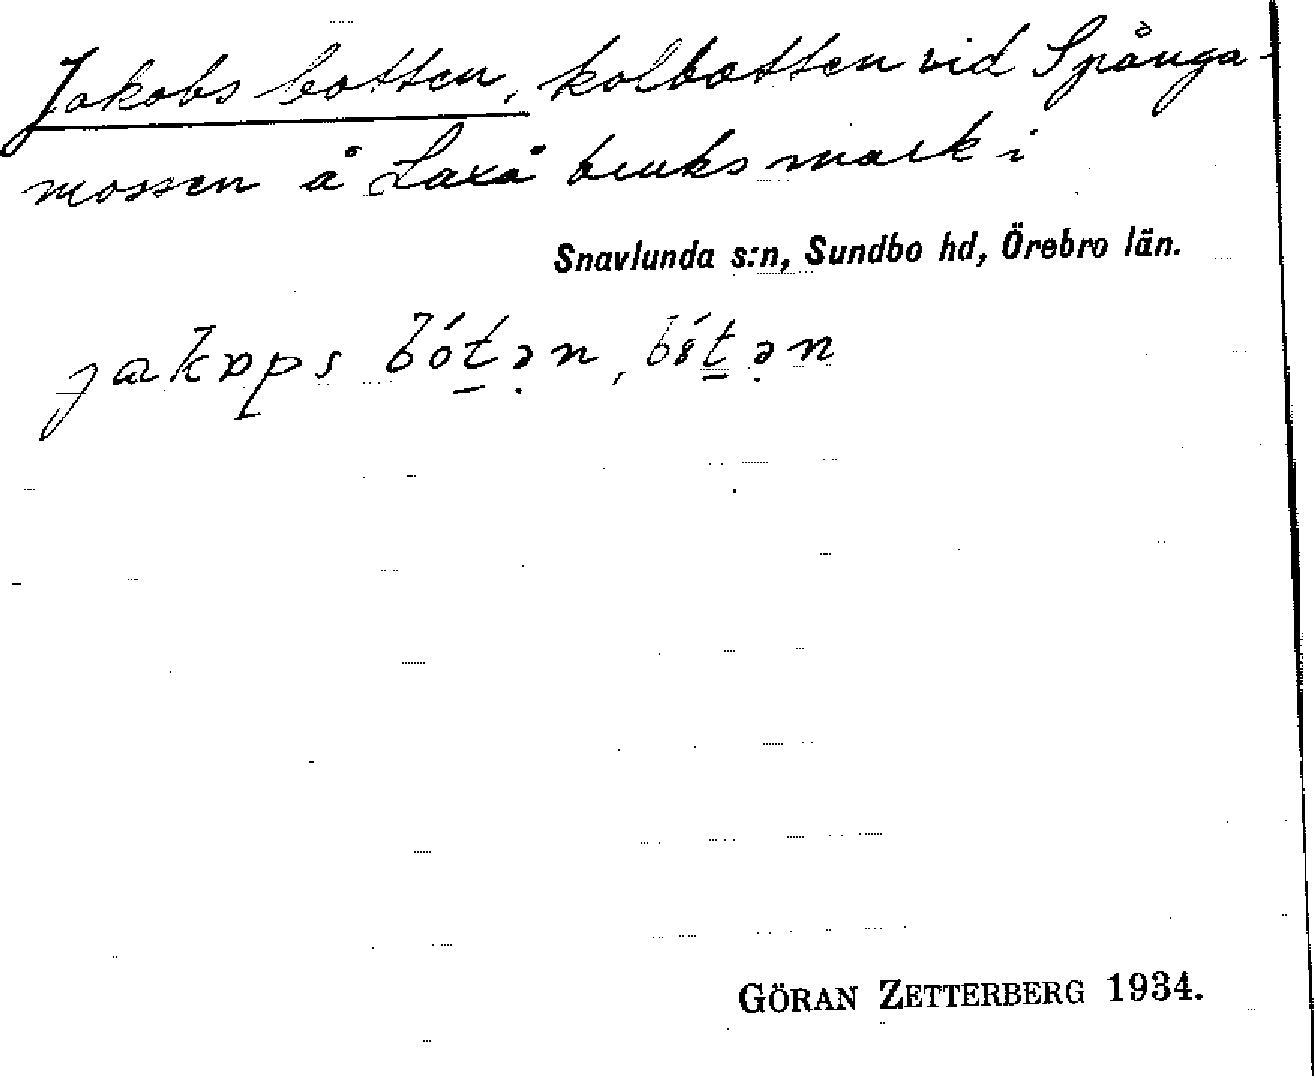 Jakobs botten, kolbotten vid Spånga-
mossen å Laxå bruks mark i
Snavlunda s:n, Sundbo hd, Örebro län.
GÖRAN ZETTERBERG 1934.